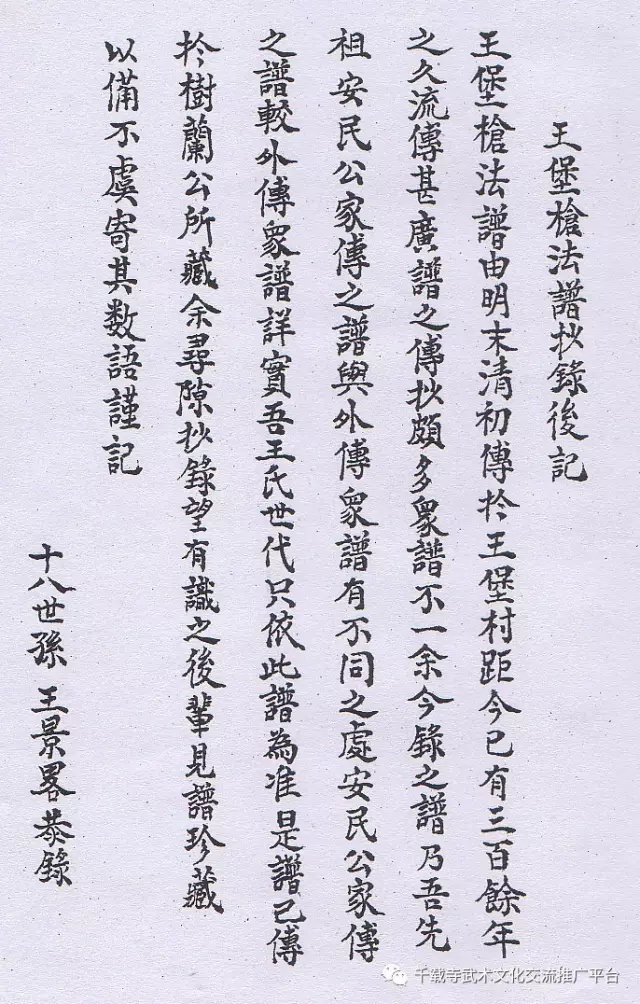 王堡槍法譜抄錄後記
王堡槍法譜由明末清初傳扵王堡村距今已有三百餘年
之久流傳甚廣譜之傳抄頗多衆譜不一余今錄之譜乃吾先
祖安民公家傳之譜與外傳衆譜有不同之處安民公家傳
之譜較外傳衆譜詳實吾王氏世代只依此譜為准是譜已傳
扵樹蘭公所藏余尋隙抄錄望有識之後輩見譜珍藏
以備不虞寄其数語謹記
十八世孫 王景畧恭錄
千载寺武术文化交流推广平台